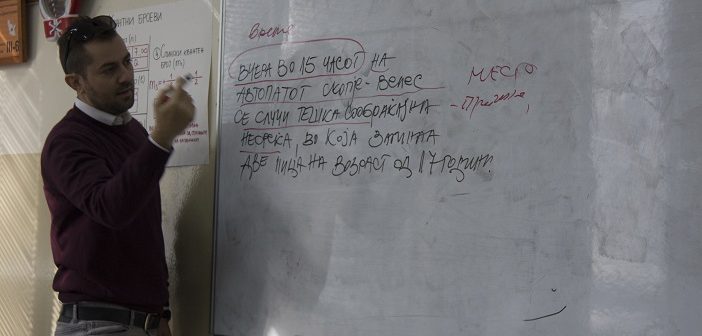 време
ВЧЕРА ВО 15 ЧАСОТ НА
АВТОПАТОТ СКОПЈЕ-ВЕЛЕС
СЕ СЛУЧИ ТЕШКА СООБРАЌАЈНА
НЕСРЕЌА, ВО КОЈА ЗАГИНАА
ДВЕ ЛИЦА НА ВОЗРАСТ ОД 17 ГОДИНИ.
МЕСТО
АНТНИ БРОЕВИ
СПИНСКИ КВАНТЕН
БРОЈ (ms)
III-6